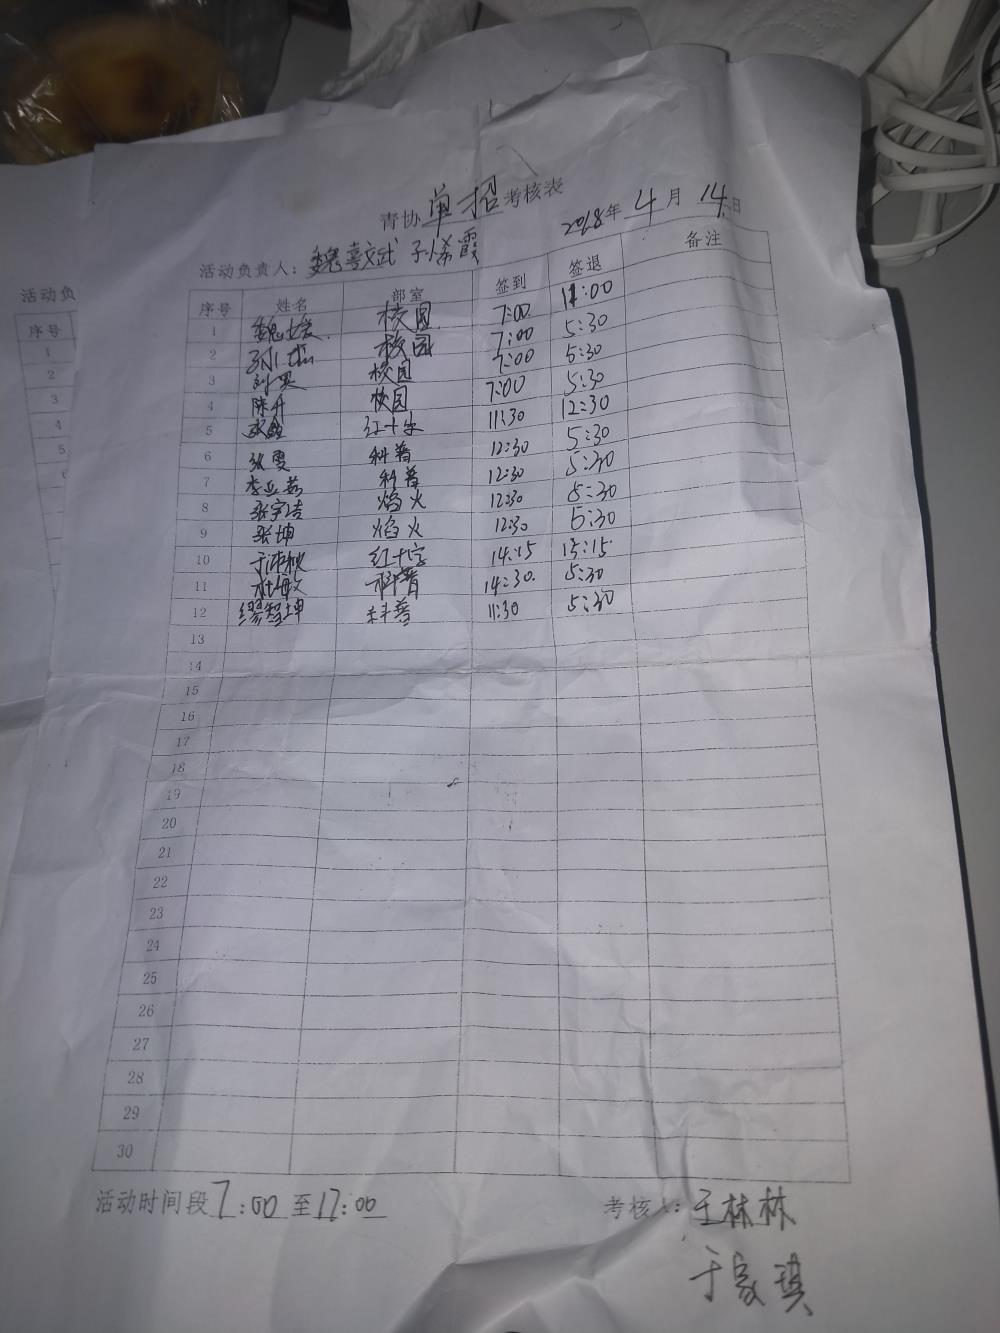 青协 单招 考核表
2018年 4 月 14 日
活动负责人：魏喜斌
序号 姓名 部室 签到 签退 备注
1 校园 7:00 11:00
2 校园 7:00 5:30
3 刘 校园 7:00 5:30
4 陈升 校园 7:00 5:30
5 红十字 11:30 12:30
6 张雯 科普 12:30 5:30
7 李亚茹 科普 12:30 5:30
8 张宇洁 焰火 12:30 5:30
9 张坤 焰火 12:30 5:30
10 于沛 红十字 14:15 15:15
11 杜敏 科普 14:30 5:30
12 缪智坤 科普 11:30 5:30
13
14
15
16
17
18
19
20
21
22
23
24
25
26
27
28
29
30
活动时间段 7:00 至 17:00
考核人：王林林
于家琪
活动负
序号
1
2
3
4
5
6